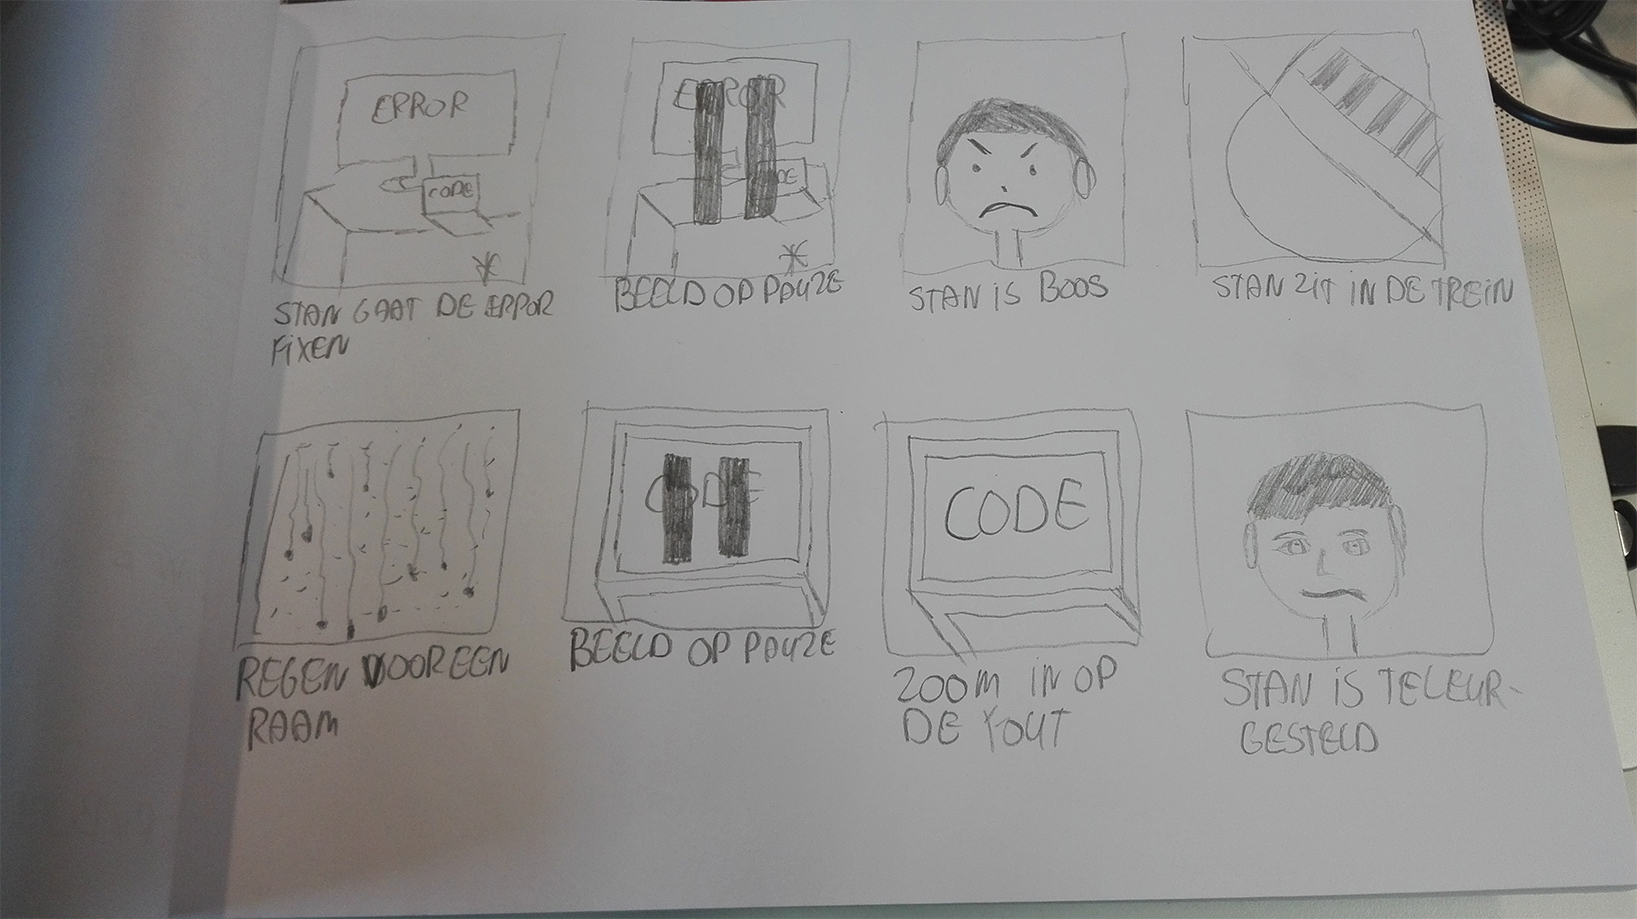 ERROR
CODE
STAN GAAT DE ERROR
FIXEN
ERROR
CODE
BEELD OP PAUZE
STAN IS BOOS
STAN ZIT IN DE TREIN
REGEN DOOR EEN
RAAM
CODE
BEELD OP PAUZE
CODE
ZOOM IN OP
DE FOUT
STAN IS TELEUR-
GESTELD